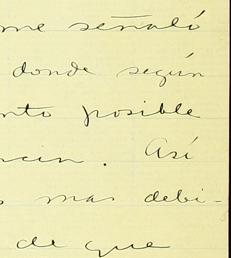 me señaló
donde según
nto posible
ncin. Así
s mas debi-
de que